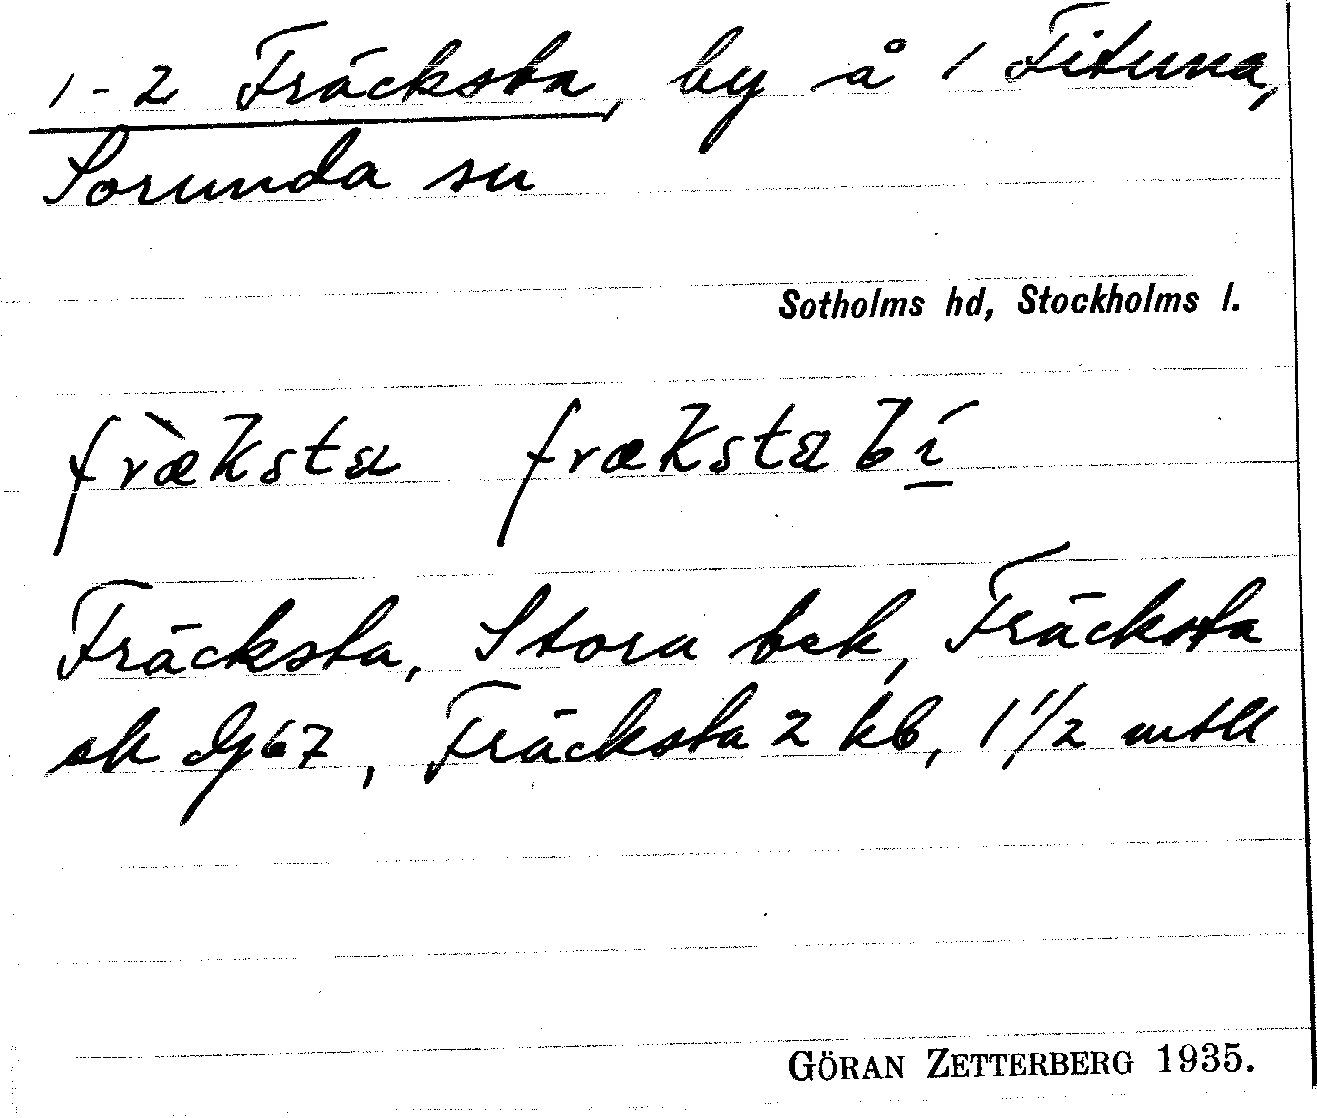 1-2 Fräcksta, by å 1 Fituna,
Sorunda sn
Sotholms hd, Stockholms l.
fræ̀ksta frækstabí
Fräcksta, Stora bek, Fräcksta
sk Dj67, Fräcksta 2 kb, 1 1/2 mtll
GÖRAN ZETTERBERG 1935.